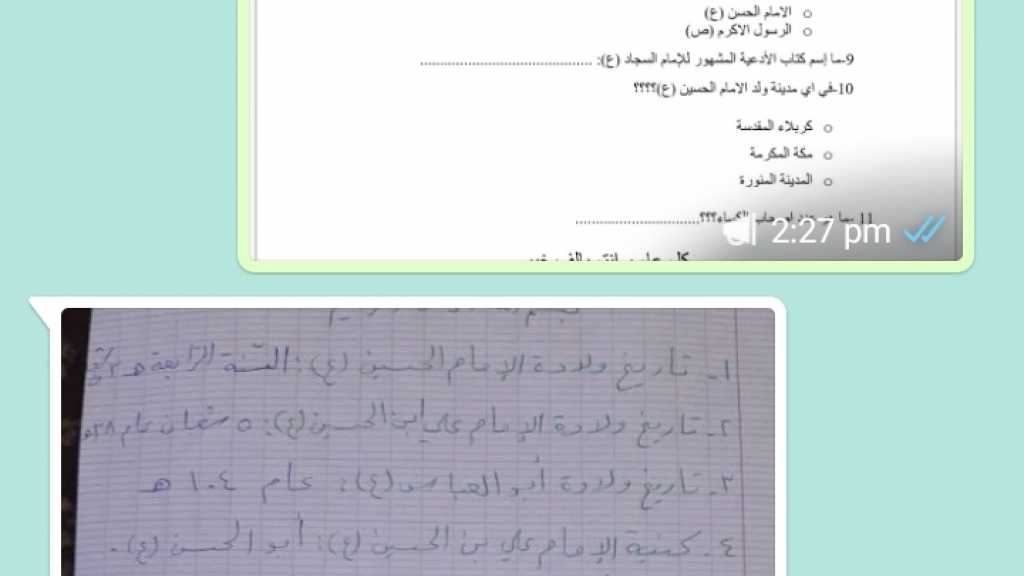 الامام الحسن (ع)
الرسول الاكرم (ص)
9-ما إسم كتاب الأدعية المشهور للإمام السجاد (ع): ..........................................
10-في اي مدينة ولد الامام الحسين (ع)؟؟؟؟
كربلاء المقدسة
مكة المكرمة
المدينة المنورة
11 -ما عدد الكساء؟؟؟..............................
2:27 pm
كل وانتم بالف خير
١- تاريخ ولادة الإمام الحسين (ع): السّنة الرابعة هـ
٢- تاريخ ولادة الإمام علي ابن الحسين (ع): ٥ شعبان عام ٣٨هـ
٣- تاريخ ولادة أبو العباس (ع): عام ١٠٤ هـ
٤- كنية الإمام علي بن الحسين (ع): أبو الحسن (ع).